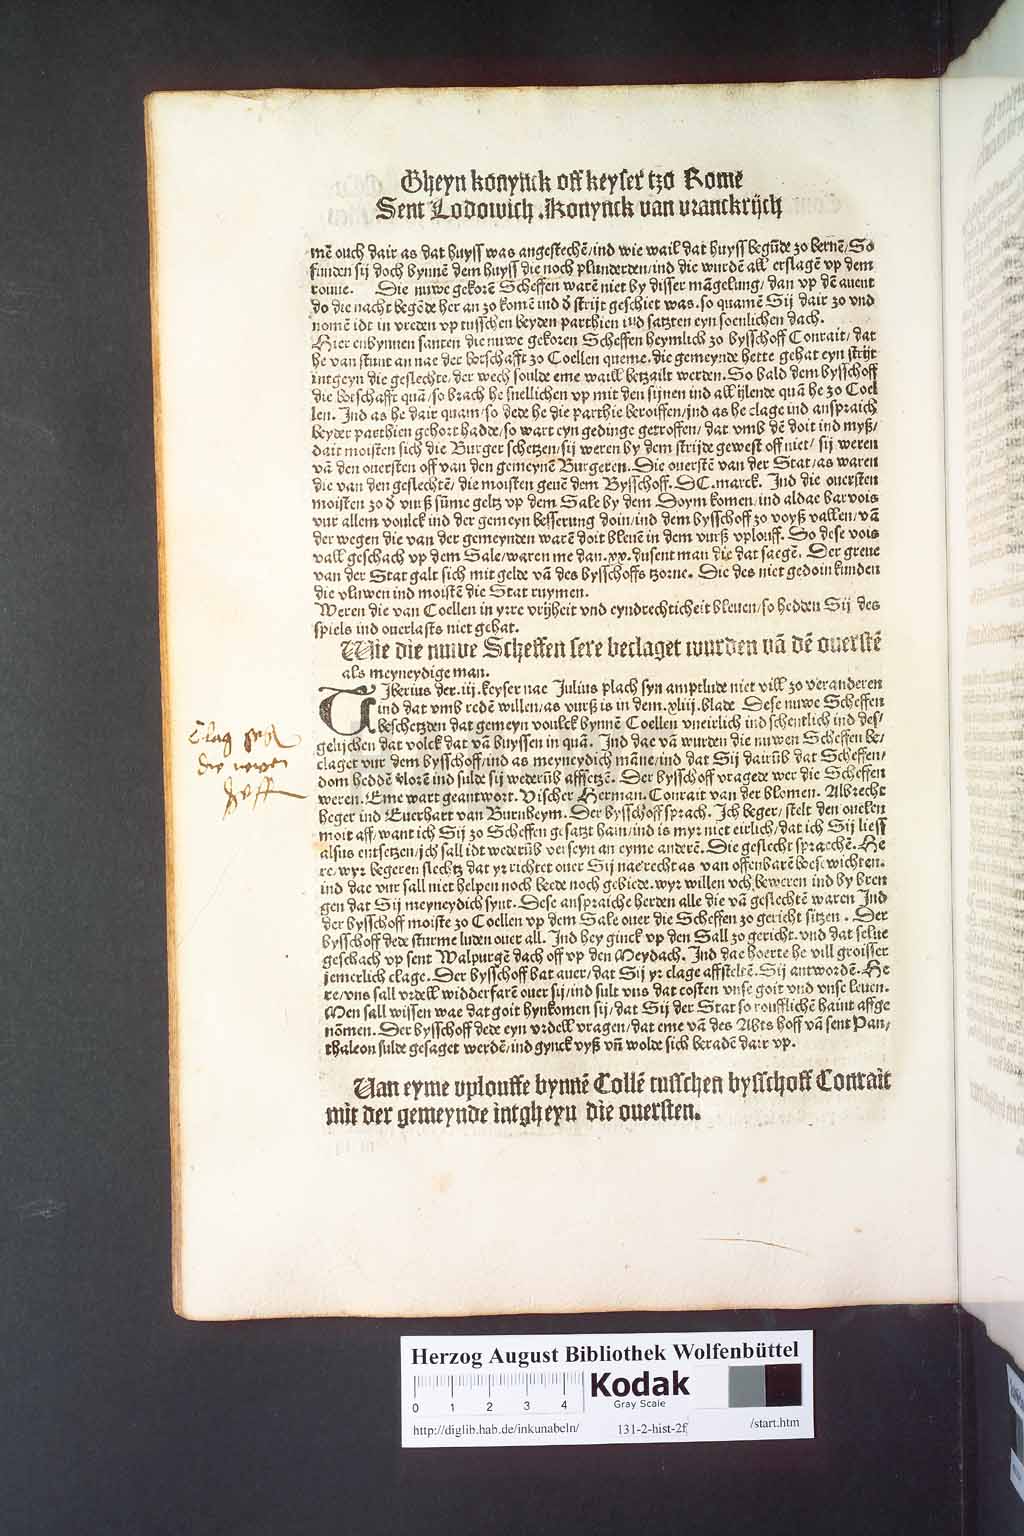 Gheyn konynck off keyser tzo Rome
Sent Lodowich. Konynck van vranckrijch
mē ouch dair as dat huyss was angestechē/ind wie wail dat huyss begūde zo bernē/So
funden sij doch bynnē dem huyss die noch plunderden/ind die wurdē all erslagē vp dem
rouue. Die nuwe gekorē Scheffen warē niet by disser māgelung/dan vp dē auent
do die nacht begēde her an zo komē ind d strijt geschiet was. so quamē Sij dair zo vnd
nomē idt in vreden vp tusschen beyden parthien ind satzten eyn soenlichen dach.
Hier enbynnen santen die nuwe gekozen Scheffen heymlich zo bysschoff Conrait/dat
he van stunt an nae der botschafft zo Coellen queme. die gemeynde hette gehat eyn strijt
intgeyn die geslechte/der wech soulde eme waill betzailt werden. So bald dem bysschoff
die botschafft quā/so brach he snellichen vp mit den sijnen ind all ijlende quā he zo Coel
len. Ind as he dair quam/so dede he die parthie beroiffen/ind as he clage ind anspraich
beyder parthien gehort hadde/so wart eyn gedinge getroffen/dat vmb dē doit ind myß/
dait moisten sich die Burger schetzen/sij weren by dem strijde gewest off niet/sij weren
vā den ouersten off van den gemeynē Burgeren. Die ouerstē van der Stat/as waren
die van den geslechtē/die moisten geuē dem Bysschoff. DC. marck. Ind die ouersten
moisten zo d vurß sūme geltz vp dem Sale by dem Doym komen/ind aldae barvois
vur allem voulck ind der gemeyn besserung doin/ind dem bysschoff zo voyß vallen/vā
der wegen die van der gemeynden warē doit bleuē in dem vurß vplouff. So dese vois
vall geschach vp dem Sale/waren me dan .xx. dusent man die dat saegē. Der greue
van der Stat galt sich mit gelde vā des bysschoffs tzorne. Die des niet gedoin kunden
die vluwen ind moistē die Stat ruymen.
Weren die van Coellen in yrre vrijheit vnd eyndrechticheit bleuen/so hedden Sij des
spiels ind ouerlasts niet gehat.
Wie die nuwe Scheffen sere beclaget wurden vā dē ouerstē
als meyneydige man.
Tiberius der .iij. keyser nae Julius plach syn amptlude niet vill zo veranderen
ind dat vmb redē willen/as vurß is in dem .xliij. blade Dese nuwe Scheffen
beschetzden dat gemeyn voulck bynnē Coellen vneirlich ind schentlich ind des/
gelijchen dat volck dat vā buyssen in quā. Ind dae vā wurden die nuwen Scheffen be/
claget vur dem bysschoff/ind as meyneydich māne/ind dat Sij dairūb dat Scheffen/
dom heddē vlorē ind sulde sij wederūb affsetzē. Der bysschoff vragede wer die Scheffen
weren. Eme wart geantwort. Vischer Herman. Conrait van der blomen. Albrecht
beger ind Euerhart van Burnheym. Der bysschoff sprach. Ich beger/stelt den ouelen
moit aff/want ich Sij zo Scheffen gesatzt hain/ind is myr niet eirlich/dat ich Sij liess
alsus entsetzen/ich sall idt wederūb verseyn an eyme anderē. Die geslecht spraechen. He
re. wyr begeren slechtz dat yr richtet ouer Sij nae recht as van offenbarē boesewichten.
ind dae vur sall niet helpen noch beede noch gebiede. wyr willen vch beweren ind by bren
gen dat Sij meyneydich synt. Dese anspraiche herden alle die vā geslechtē waren Ind
der bysschoff moiste zo Coellen vp dem Sale ouer die Scheffen zo gericht sitzen. Der
bysschoff dede sturme luden ouer all. Ind hey ginck vp den Sall zo gericht. vnd dat selue
geschach vp sent Walpurgē dach off vp den Meydach. Ind dae hoerte he vill groisser
jemerlich clage. Der bysschoff bat auer/dat Sij yr clage affsteltē. Sij antwordē. He
re/vns sall vrdell widderfarē ouer sij/ind sult vns dat costen vnse goit vnd vnse leuen.
Men sall wissen wae dat goit hynkomen sij/dat Sij der Stat so roufflichē haint affge
nōmen. Der bysschoff dede eyn vrdell vragen/dat eme vā des Abts hoff vā sent Pan/
thaleon sulde gesaget werdē/ind gynck vyß vn̄ wolde sich beradē dair vp.
Van eyme vplouffe bynnē Collē tusschen bysschoff Conrait
mit der gemeynde intgheyn die ouersten.
Clag
die newen
Herzog August Bibliothek Wolfenbüttel
0 1 2 3 4
Kodak
Gray Scale
http://diglib.hab.de/inkunabeln/ 131-2-hist-2f /start.htm